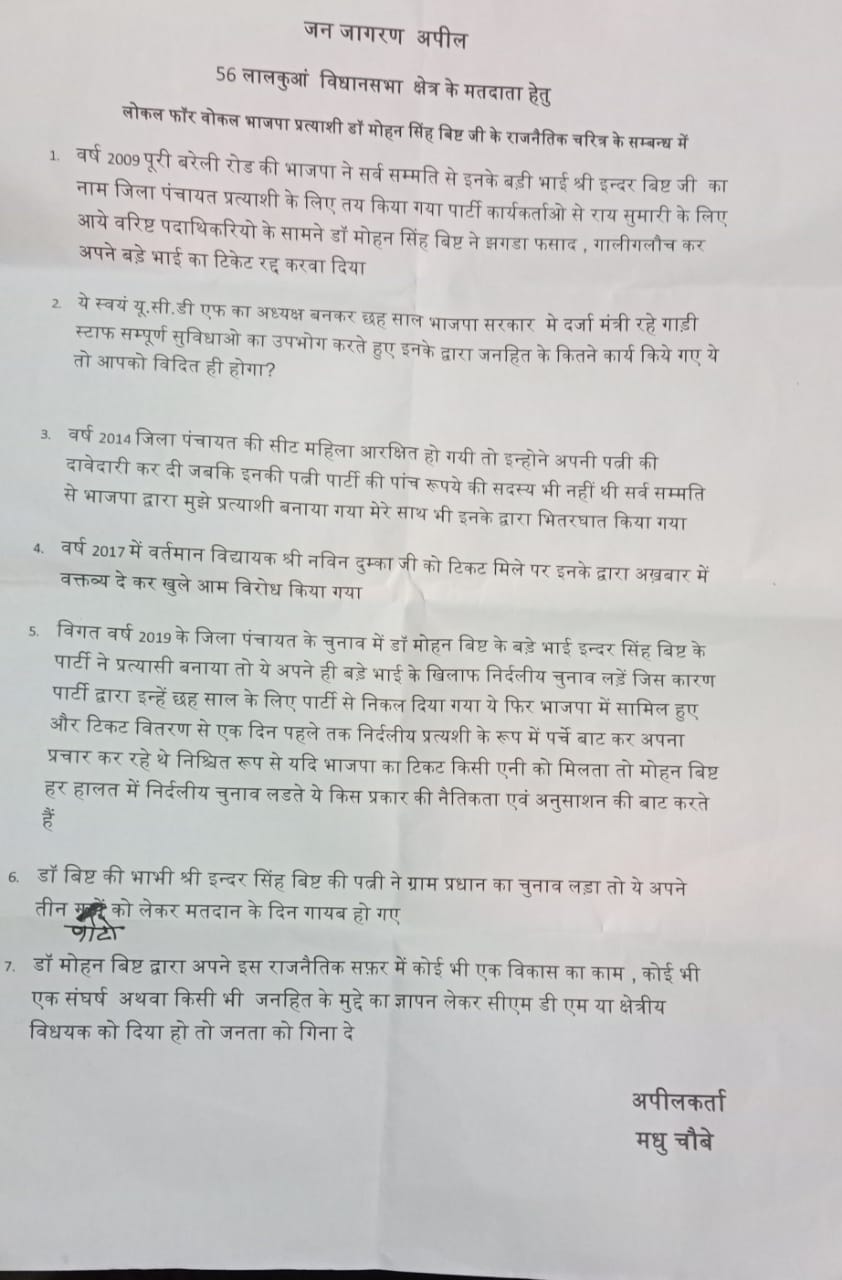 जन जागरण अपील
56 लालकुआं विधानसभा क्षेत्र के मतदाता हेतु
लोकल फॉर वोकल भाजपा प्रत्याशी डॉ मोहन सिंह बिष्ट जी के राजनैतिक चरित्र के सम्बन्ध में
1. वर्ष 2009 पूरी बरेली रोड की भाजपा ने सर्व सम्मति से इनके बड़ी भाई श्री इन्दर बिष्ट जी का
नाम जिला पंचायत प्रत्याशी के लिए तय किया गया पार्टी कार्यकर्ताओ से राय सुमारी के लिए
आये वरिष्ट पदाधिकरियो के सामने डॉ मोहन सिंह बिष्ट ने झगडा फसाद , गालीगलौच कर
अपने बड़े भाई का टिकेट रद्द करवा दिया
2. ये स्वयं यू.सी.डी एफ का अध्यक्ष बनकर छह साल भाजपा सरकार मे दर्जा मंत्री रहे गाड़ी
स्टाफ सम्पूर्ण सुविधाओ का उपभोग करते हुए इनके द्वारा जनहित के कितने कार्य किये गए ये
तो आपको विदित ही होगा?
3. वर्ष 2014 जिला पंचायत की सीट महिला आरक्षित हो गयी तो इन्होने अपनी पत्नी की
दावेदारी कर दी जबकि इनकी पत्नी पार्टी की पांच रूपये की सदस्य भी नहीं थी सर्व सम्मति
से भाजपा द्वारा मुझे प्रत्याशी बनाया गया मेरे साथ भी इनके द्वारा भितरघात किया गया
4. वर्ष 2017 में वर्तमान विद्यायक श्री नविन दुम्का जी को टिकट मिले पर इनके द्वारा अख़बार में
वक्तव्य दे कर खुले आम विरोध किया गया
5. विगत वर्ष 2019 के जिला पंचायत के चुनाव में डॉ मोहन बिष्ट के बड़े भाई इन्दर सिंह बिष्ट के
पार्टी ने प्रत्यासी बनाया तो ये अपने ही बड़े भाई के खिलाफ निर्दलीय चुनाव लड़ें जिस कारण
पार्टी द्वारा इन्हें छह साल के लिए पार्टी से निकल दिया गया ये फिर भाजपा में सामिल हुए
और टिकट वितरण से एक दिन पहले तक निर्दलीय प्रत्यशी के रूप में पर्चे बाट कर अपना
प्रचार कर रहे थे निश्चित रूप से यदि भाजपा का टिकट किसी एनी को मिलता तो मोहन बिष्ट
हर हालत में निर्दलीय चुनाव लडते ये किस प्रकार की नैतिकता एवं अनुसाशन की बाट करते
हैं
6. डॉ बिष्ट की भाभी श्री इन्दर सिंह बिष्ट की पत्नी ने ग्राम प्रधान का चुनाव लड़ा तो ये अपने
तीन को लेकर मतदान के दिन गायब हो गए
7. डॉ मोहन बिष्ट द्वारा अपने इस राजनैतिक सफ़र में कोई भी एक विकास का काम , कोई भी
एक संघर्ष अथवा किसी भी जनहित के मुद्दे का ज्ञापन लेकर सीएम डी एम या क्षेत्रीय
विधयक को दिया हो तो जनता को गिना दे
अपीलकर्ता
मधु चौबे